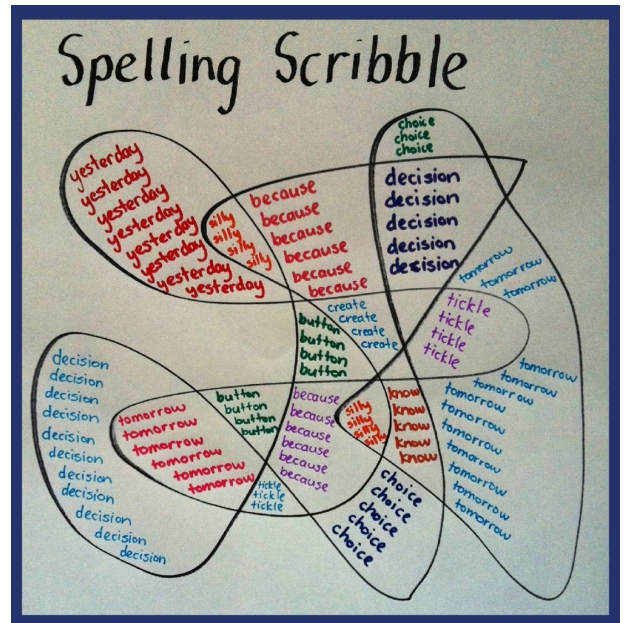 Spelling Scribble
choice
choice
choice
yesterday
yesterday
yesterday
yesterday
yesterday
yesterday
yesterday
yesterday
silly
silly
silly
silly
because
because
because
because
because
because
decision
decision
decision
decision
decision
tomorrow
tomorrow
tomorrow
create
create
create
create
tickle
tickle
tickle
tickle
button
button
button
button
decision
decision
decision
decision
decision
decision
decision
decision
decision
decision
decision
tomorrow
tomorrow
tomorrow
tomorrow
tomorrow
tomorrow
button
button
button
button
tickle
tickle
tickle
because
because
because
because
because
because
silly
silly
silly
silly
know
know
know
know
know
tomorrow
tomorrow
tomorrow
tomorrow
tomorrow
tomorrow
tomorrow
tomorrow
tomorrow
tomorrow
choice
choice
choice
choice
choice